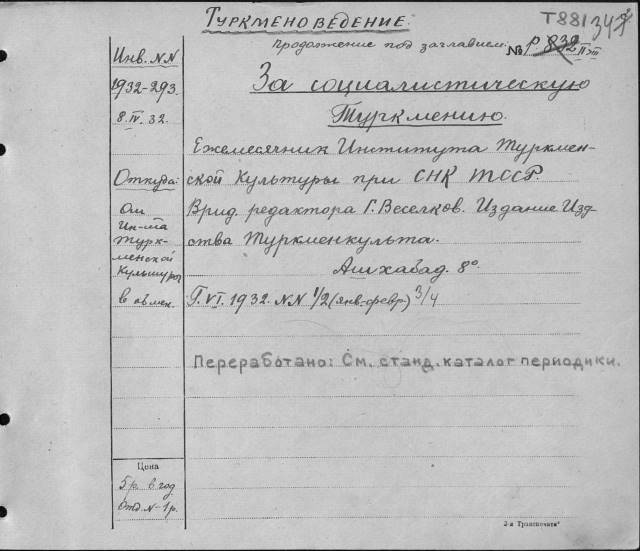 Туркменоведение.
Т881347
Продолжение под заглавием:
№ р. 839
II XIII
Инв. NN
За социалистическую
1932-293.
Туркмению.
8.IV.32.
Ежемесячник Института Туркмен-
Откуда:
ской Культуры при СНК ТССР.
От
Врид. редактора Г. Веселков. Издание Изд-
Ин-та
ства Туркменкульта.
Турк-
менской
Ашхабад. 8°.
Культуры
в обмен.
Г. VI. 1932. NN 1/2 (янв.-февр) 3/4
Переработано: См. станд. каталог периодики.
Цена
5р. в год
Отд. N-1р.
2-я Транспечать